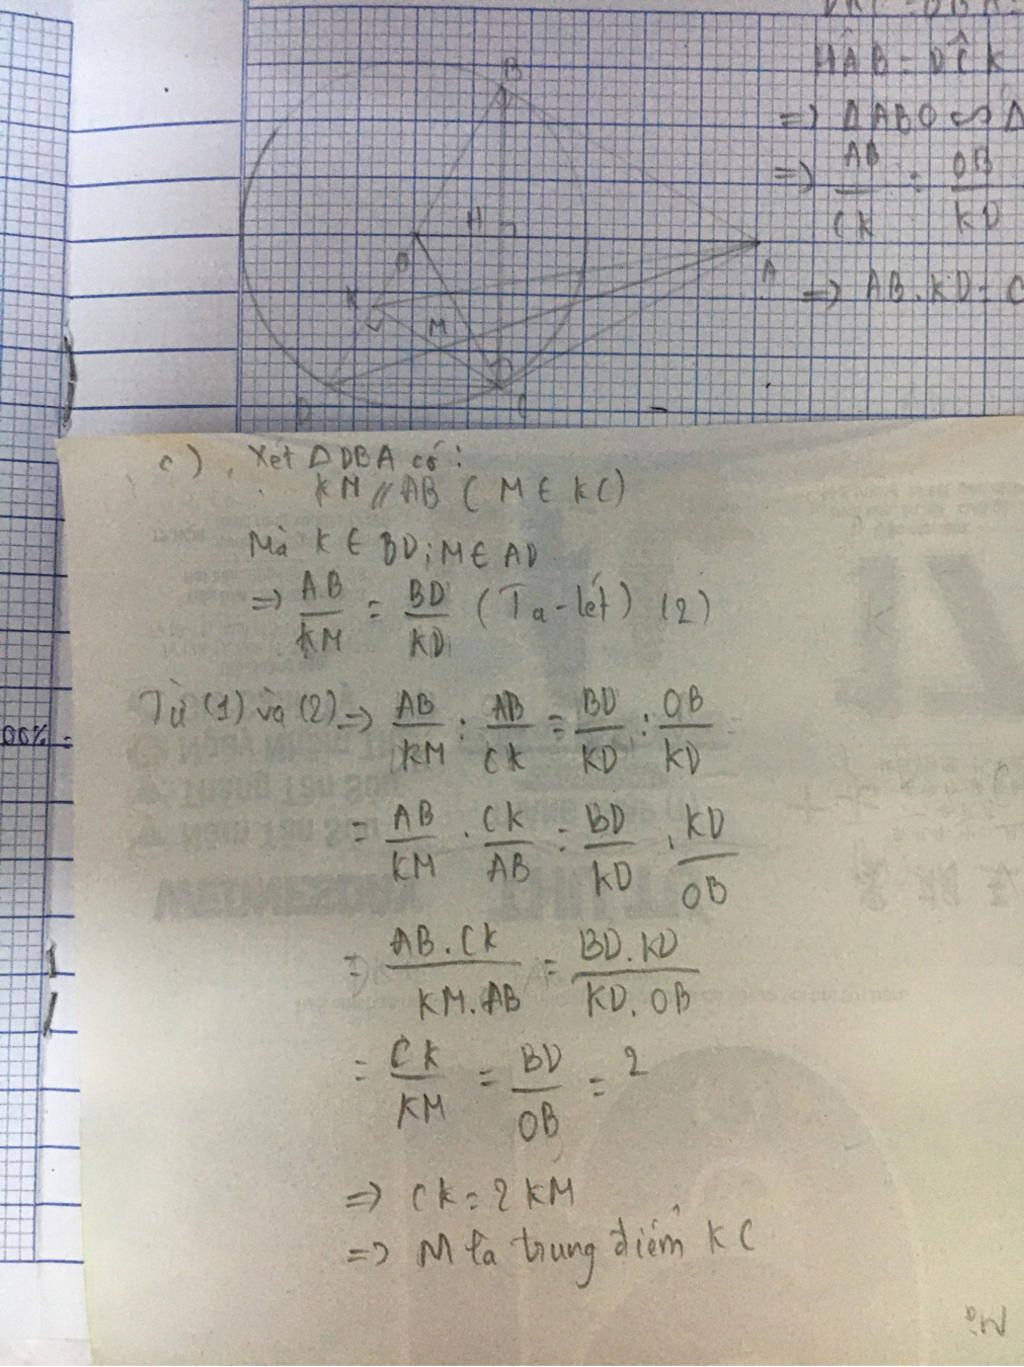 HÂB = DĈK
=> ΔABO ∽ Δ
=> AB/CK = OB/KD
=> AB.KD = C
B
H
O
A
K
M
D
C
c) Xét ΔDBA có:
KM // AB (M ∈ KC)
Mà K ∈ BD; M ∈ AD
=> AB/KM = BD/KD (Ta-lét) (2)
Từ (1) và (2) => AB/KM : AB/CK = BD/KD : OB/KD
= AB/KM . CK/AB = BD/KD . KD/OB
= AB.CK/KM.AB = BD.KD/KD.OB
= CK/KM = BD/OB = 2
=> CK = 2KM
=> M là trung điểm KC